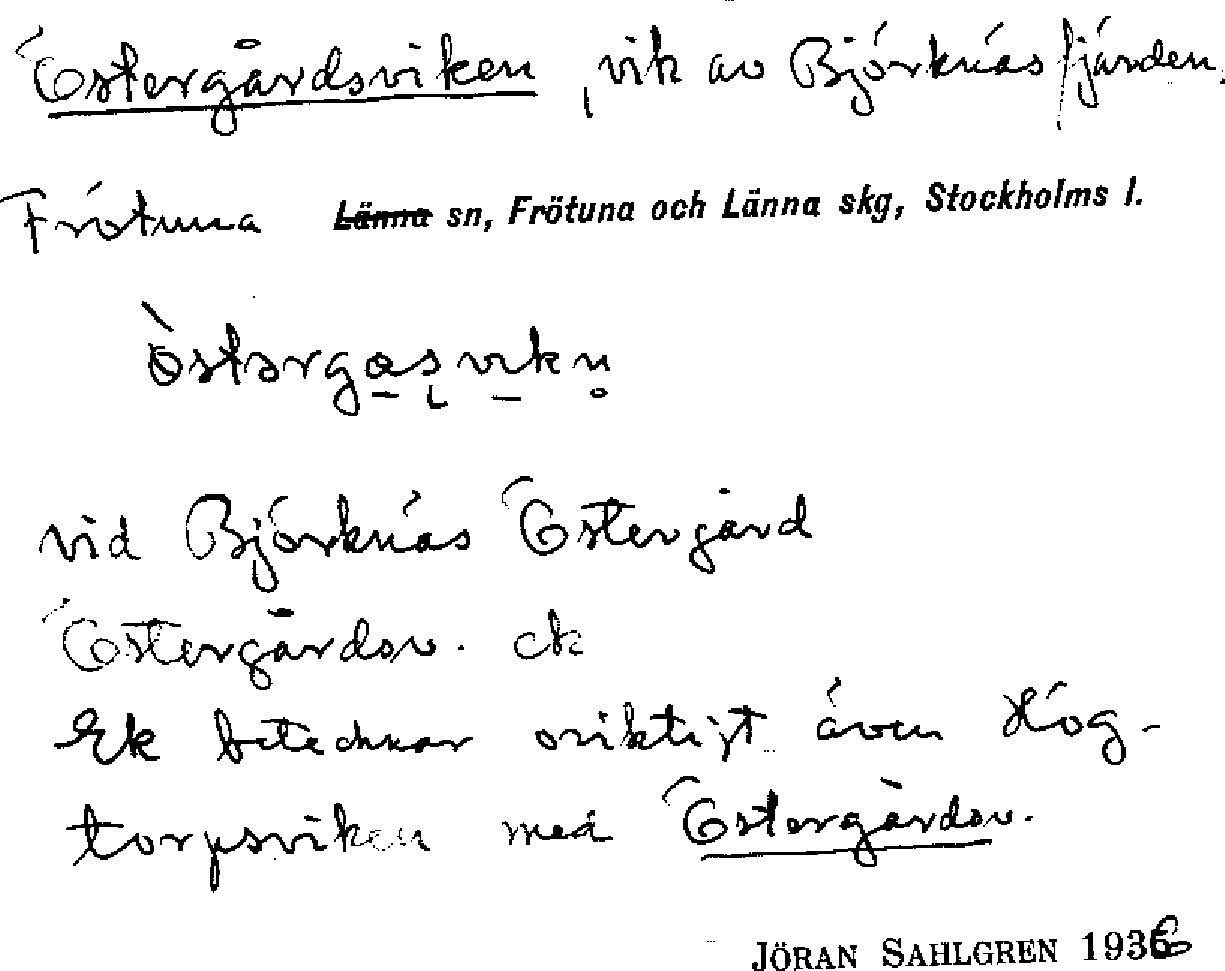 Östergårdsviken, vik av Björknäsfjärden.
Frötuna Länna sn, Frötuna och Länna skg, Stockholms l.
vid Björknäs Östergård
Östergårdsv. ek
Ek betecknar oriktigt även Hög-
torpsviken med Östergårdsv.
JÖRAN SAHLGREN 1936